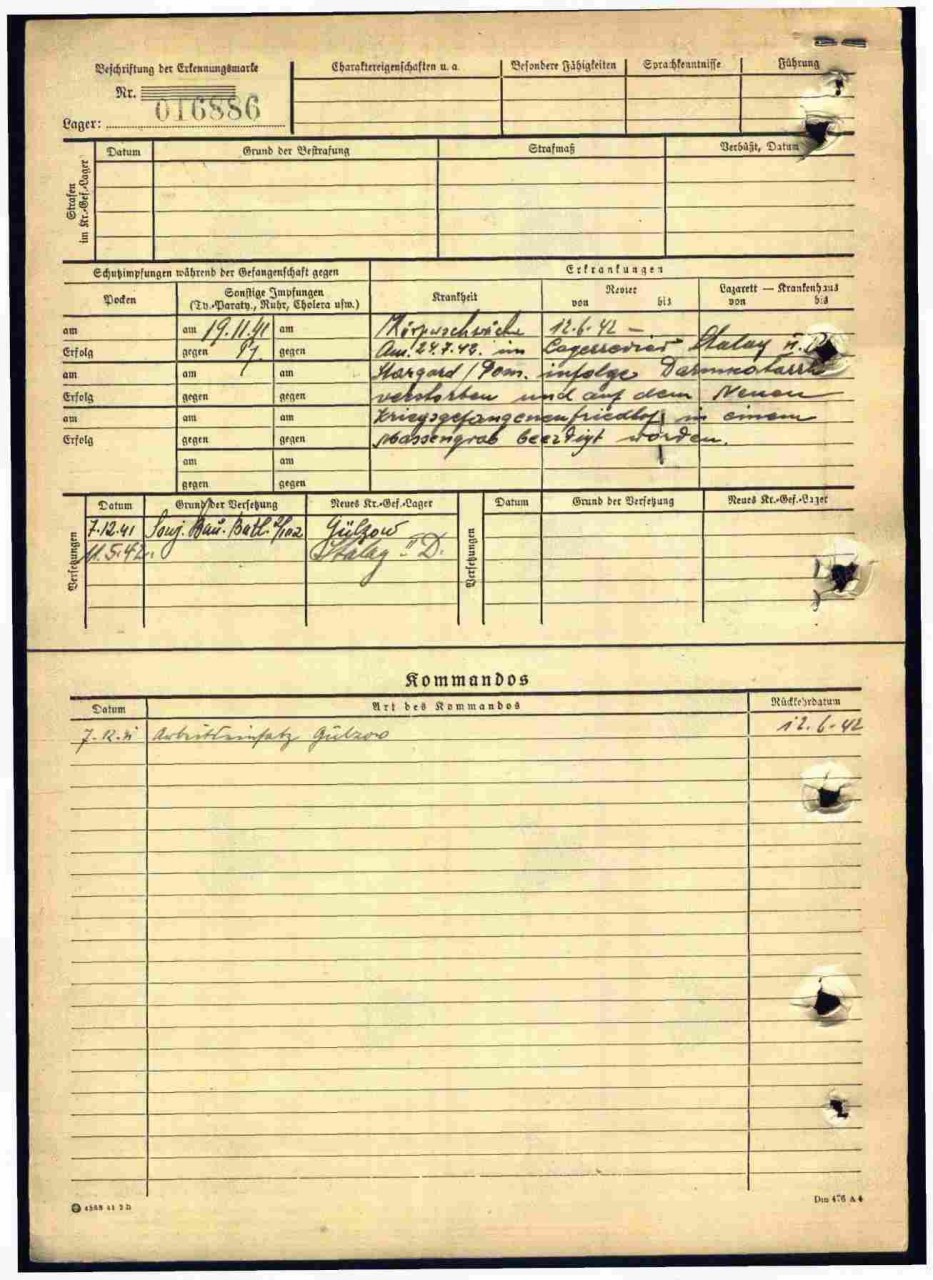 Beschriftung der Erkennungsmarke
Charaktereigenschaften u. a.
Besondere Fähigkeiten
Sprachkenntnisse
Führung
Nr. 016886
Lager:
Strafen im Kr.-Gef.-Lager
Datum
Grund der Bestrafung
Strafmaß
Verbüßt, Datum
Schutzimpfungen während der Gefangenschaft gegen
Erkrankungen
Pocken
Sonstige Impfungen
(Ty.-Paraty., Ruhr, Cholera usw.)
Krankheit
Revier
von bis
Lazarett — Krankenhaus
von bis
am am 19.11.41 am Körperschwäche 12.6.42 –
Erfolg gegen gegen Am 24.7.42. im Lagerrevier Stalag II D
am am am Stargard / Pom. infolge Darmkatarrh
Erfolg gegen gegen verstorben und auf dem Neuen
am am am Kriegsgefangenenfriedhof in einem
Erfolg gegen gegen Massengrab beerdigt worden.
am am
gegen gegen
Versetzungen
Datum
Grund der Versetzung
Neues Kr.-Gef.-Lager
Versetzungen
Datum
Grund der Versetzung
Neues Kr.-Gef.-Lager
7.12.41 Bau. Batl. Gülzow
11.5.42. Stalag II D.
Kommandos
Datum
Art des Kommandos
Rückkehrdatum
7.12.41 Arbeitseinsatz Gülzow 12.6.42
4588 41 2 D
Din 476 A 4